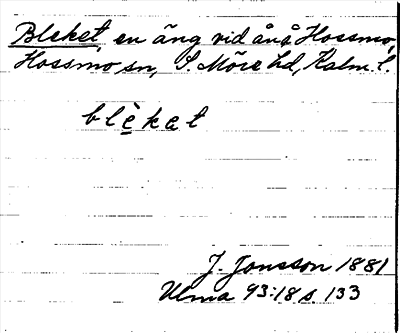 Bleket, en äng vid ån å Hossmo,
Hossmo sn, S. Möre hd, Kalm. l.
blèket
J. Jonsson 1881
Ulma 93:18 s. 133